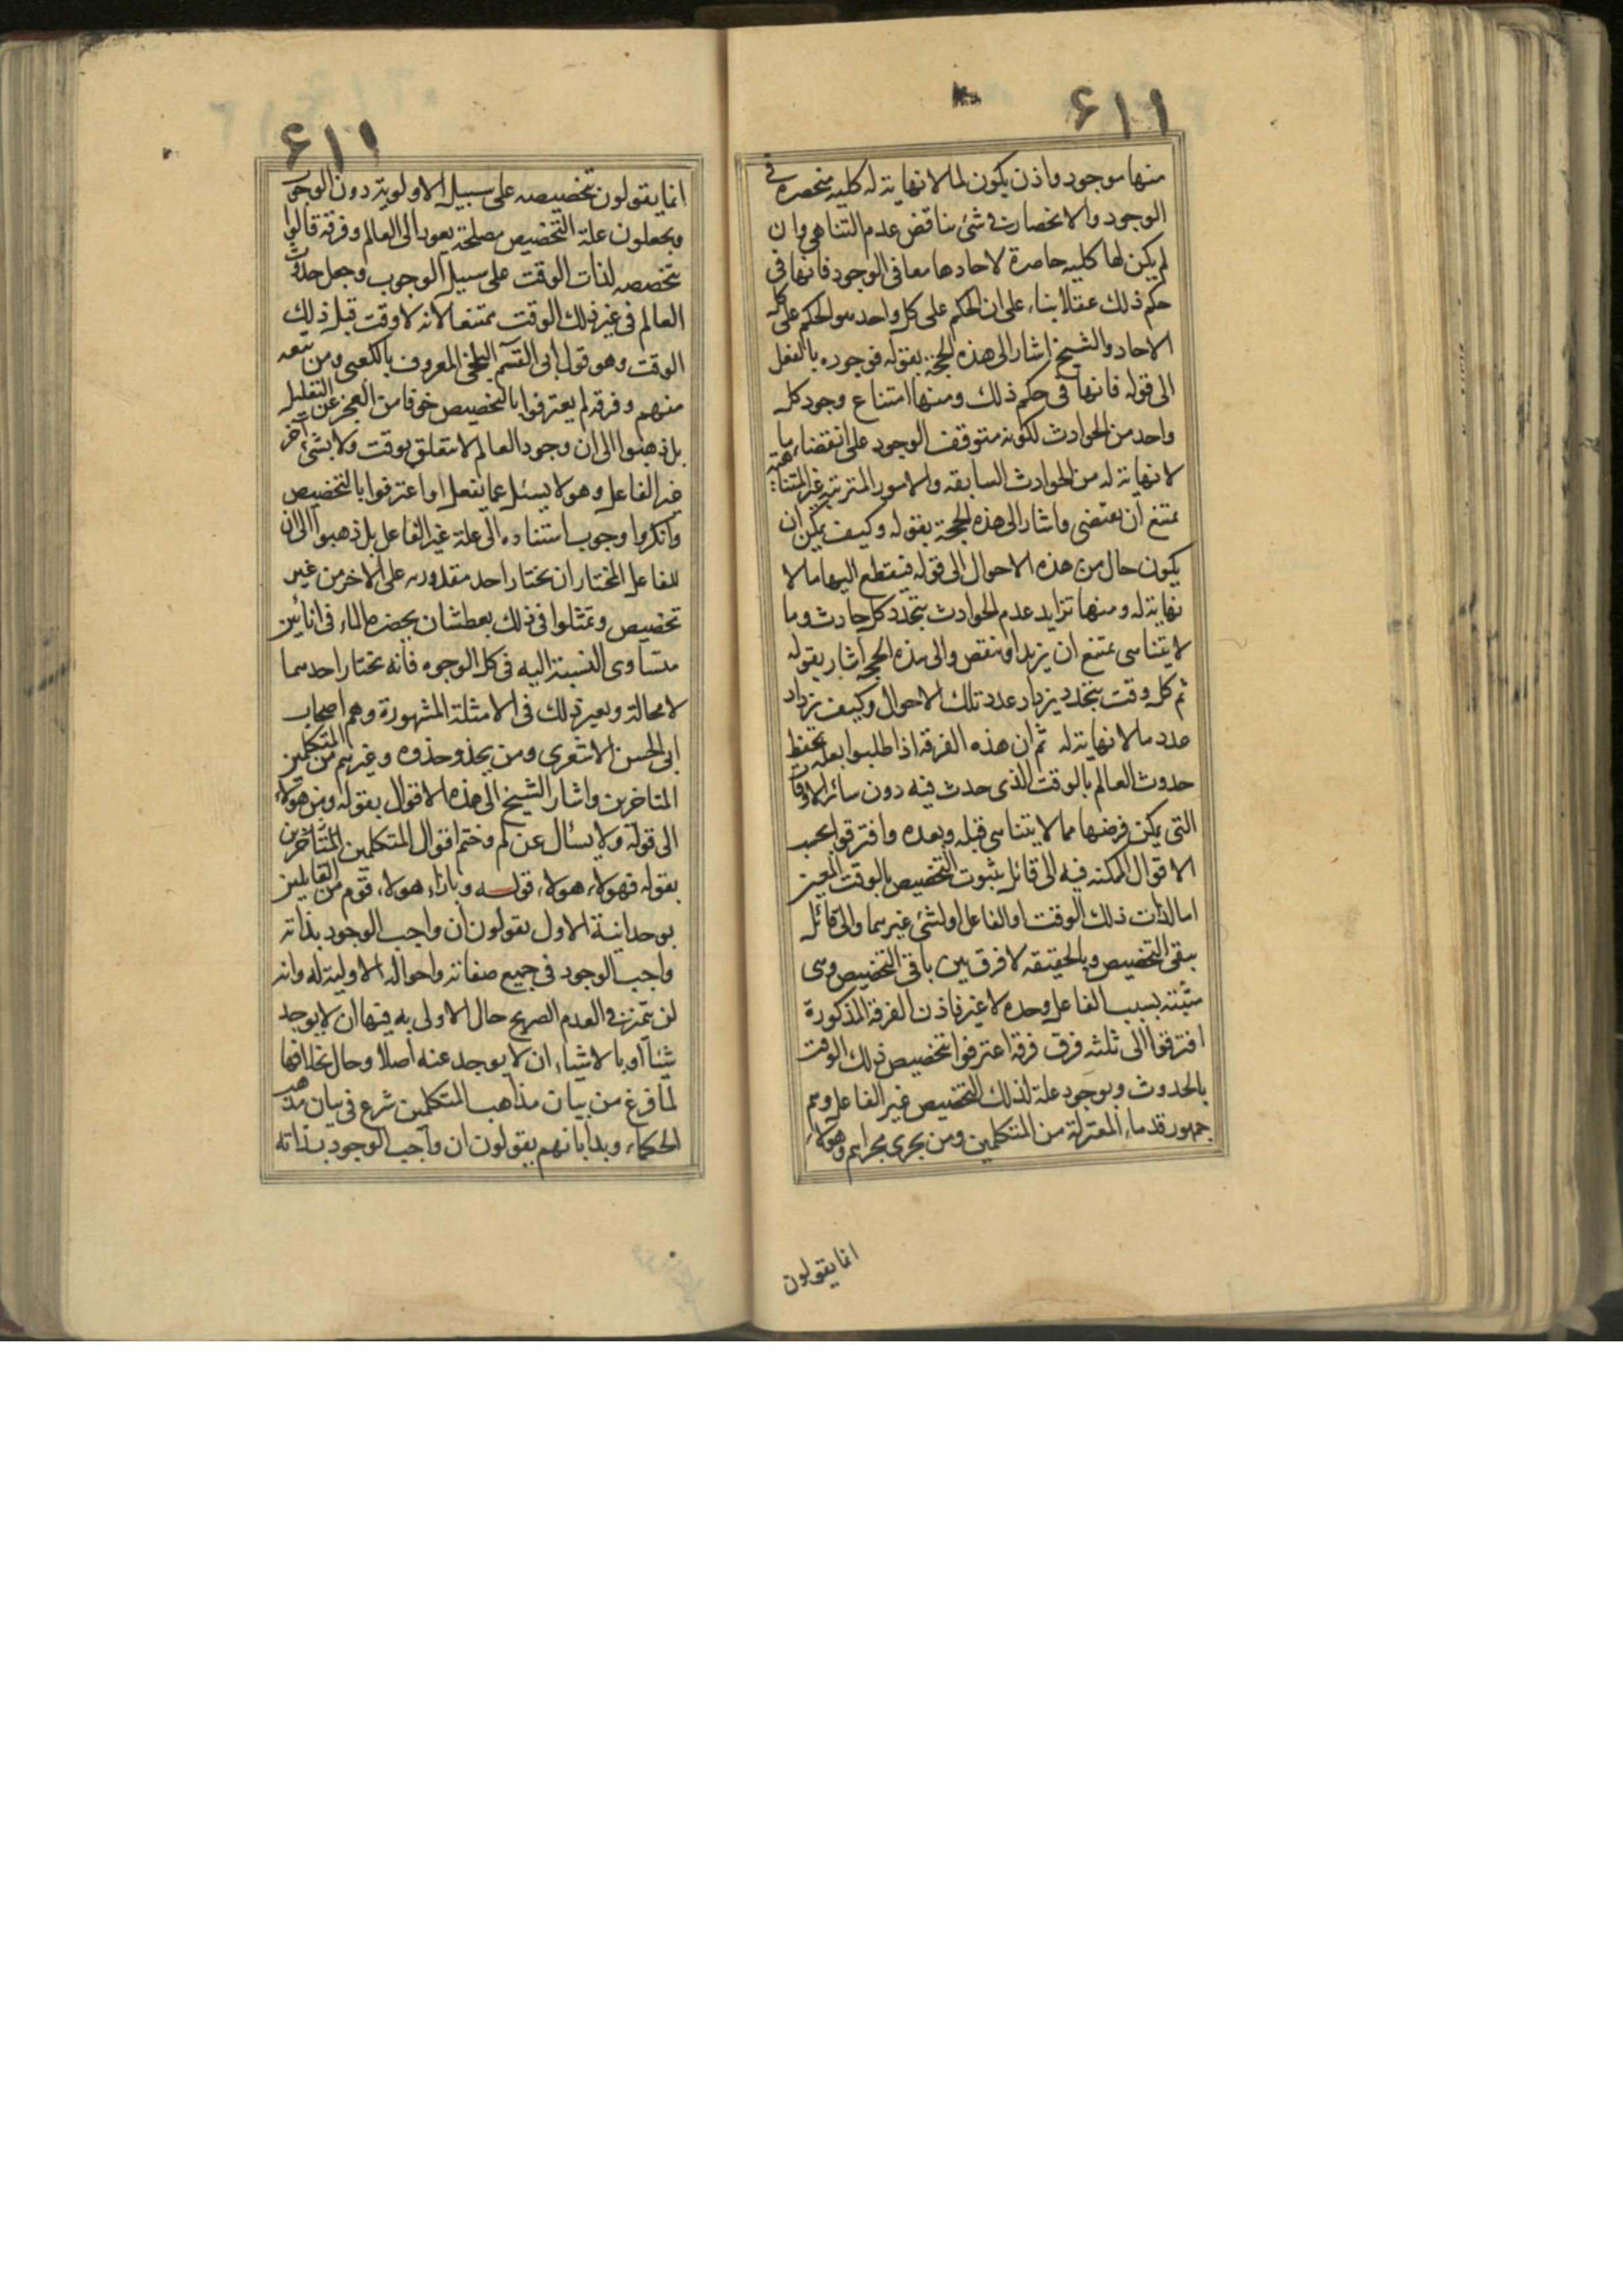 ۱۱۶
منها موجود واذن يكون لما لا نهاية له كلية منحصرة في
الوجود والانحصار في شئ يناقض عدم التناهى وان
لم يكن لها كلية حاصرة لاحادها معا فى الوجود فانها فى
حكم ذلك عقلا بناء على ان الحكم على كل واحد هو الحكم على كل
الاحاد والشيخ اشار الى هذه الحجة بقوله فوجوده بالفعل
الى قوله فانها فى حكم ذلك ومنها امتناع وجود كل
واحد من الحوادث لكونه متوقف الوجود على انقضاء ما
لا نهاية له من الحوادث السابقه والامور المترتبه غير المتناهية
يمتنع ان ينقضى واشار الى هذه الحجة بقوله وكيف يمكن ان
يكون حال من هذه الاحوال الى قوله فينقطع اليها ما لا
نهاية له ومنها تزايد عدم الحوادث بتجدد كل حادث وما
لا يتناهى يمتنع ان يزيد او ينقص والى هذه الحجة اشار بقوله
ثم كل وقت يتجدد يزداد عدد تلك الاحوال وكيف يزداد
عدد ما لا نهاية له ثم ان هذه الفرقة اذا طلبوا بعلة
حدوث العالم بالوقت الذى حدث فيه دون سائر الاوقات
التى يمكن فرضها مما لا يتناهى قبله وبعده وافترقوا بحسب
الاقوال الممكنه فيه الى قائل بثبوت التخصيص بالوقت المعين
اما لذات ذلك الوقت او الفاعل او لشئ غيرهما والى قائل
بنفى التخصيص وبالحقيقه لا فرق بين نافى التخصيص وبين
مثبته بسبب الفاعل وحده لا غير فاذن الفرقة المذكورة
افترقوا الى ثلثه فرق فرقة اعترفوا بتخصيص ذلك الوقت
بالحدوث وبوجود علة لذلك التخصيص غير الفاعل وهم
جمهور قدماء المعتزلة من المتكلمين ومن يجرى مجراهم وهولاء
انما يقولون
۱۱۶
انما يقولون تخصيصه على سبيل الاولوية دون الوجوب
ويجعلون علة التخصيص مصلحة يعود الى العالم وفرقة قالوا
بتخصصه لذات الوقت على سبيل الوجوب وجعل حدوث
العالم فى غير ذلك الوقت ممتنعا لانه لا وقت قبل ذلك
الوقت وهو قول ابى القسم البلخى المعروف بالكعبى ومن تبعه
منهم وفرقة لم يعترفوا بالتخصيص خوفا من العجز عن التعليل
بل ذهبوا الى ان وجود العالم لا يتعلق بوقت ولا بشئ آخر
غير الفاعل وهو لا يسئل عما يفعل او اعترفوا بالتخصيص
وانكروا وجوب استناده الى علة غير الفاعل بل ذهبوا الى ان
للفاعل المختار ان يختار احد مقدوريه على الاخر من غير
تخصيص وتمثلوا فى ذلك بعطشان يحضره الماء فى انائين
متساوى النسبة اليه فى كل الوجوه فانه يختار احدهما
لا محالة وبغير ذلك فى الامثلة المشهورة وهم اصحاب
ابى الحسن الاشعرى ومن يحذو حذوه وغيرهم من المتكلمين
المتاخرين واشار الشيخ الى هذه الاقوال بقوله ومن هولاء
الى قوله ولا يسأل عن لم وختم اقوال المتكلمين المتأخرين
بقوله فهولاء هولاء قوله وبازاء هولاء قوم من القائلين
بوحدانية الاول يقولون ان واجب الوجود بذاته
واجب الوجود فى جميع صفاته واحواله الاولية له وانه
لن يتميز فى العدم الصريح حال الاولى به فيها ان لا يوجد
شيئا او بالاشياء ان لا يوجد عنه اصلا وحال بخلافها
لما فرغ من بيان مذاهب المتكلمين شرع فى بيان مذهب
الحكماء وبدأ بانهم يقولون ان واجب الوجود بذاته